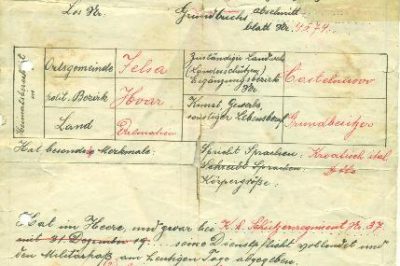 Los Nr.
Grundbuchs abschnitt
blatt Nr. 4574.
Heimatsberechtigt in
Ortsgemeinde Jelsa
polit. Bezirk Hvar
Land Dalmatien
Zuständige Landsch
Ergänzungsbezirk Castelnuovo
Nr
Kunst, Gewerbe,
sonstiger Lebensberuf Grundbesitzer
Hat besondere Merkmale:
Spricht Sprachen: Kroatisch ital.
Schreibt Sprachen: dtto
Körpergröße:
Hat im Heere, und zwar bei K.k. Schützenregiment Nr. 37
mit 31 Dezember 19 seine Dienstpflicht vollendet und
den Militärpaß am heutigen Tage abgegeben.